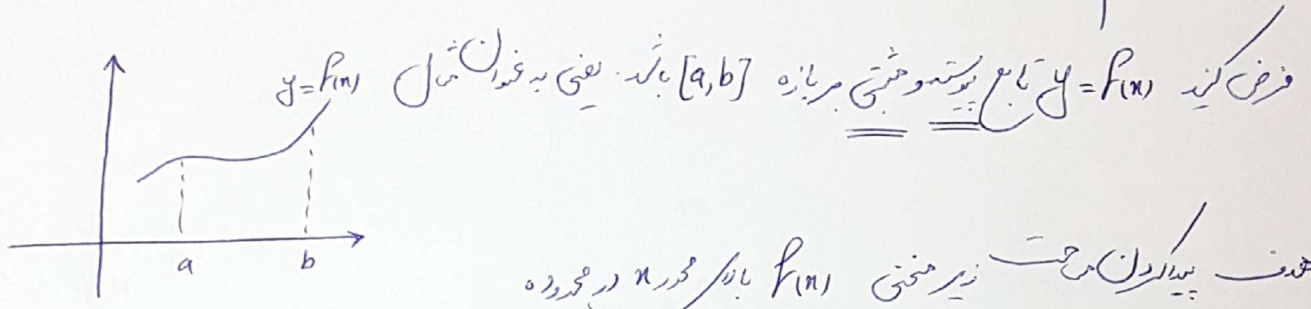 فرض کنید y = f(x) تابع پیوسته و مثبتی بر بازه [a,b] باشد. یعنی به عنوان مثال
y = f(x)
a b
هدف پیدا کردن مساحت زیر منحنی f(x) بالای محور x در محدوده